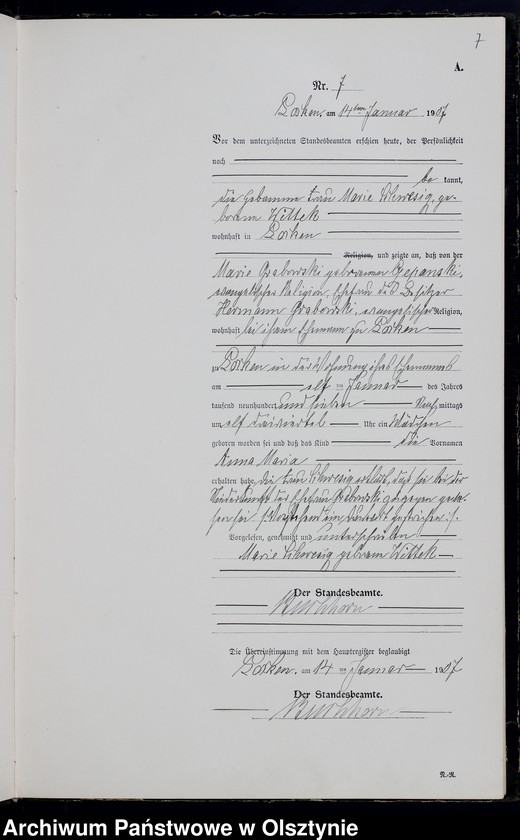 7
A.
Nr. 7
am 14ten Januar 1907
Vor dem unterzeichneten Standesbeamten erschien heute, der Persönlichkeit
nach
be kannt,
die Hebamme Frau Marie Schwesig, ge-
borene Wittek
wohnhaft in
Religion, und zeigte an, daß von der
Marie Grabowski geborenen
evangelischer Religion, Ehefrau des Besitzer
Hermann Grabowski, evangelischer Religion,
wohnhaft bei ihrem Ehemann zu
zu in der Wohnung ihres Ehemannes
am elf ten Januar des Jahres
tausend neunhundert und sieben Nach mittags
um elf dreiviertel Uhr ein Mädchen
geboren worden sei und daß das Kind die Vornamen
Anna Maria
erhalten habe. Die Frau Schwesig erklärt, daß sie bei der
Niederkunft der Ehefrau Grabowski zugegen gewe-
sen sei. gestrichen
Vorgelesen, genehmigt und unterschrieben
Marie Schwesig geborene Wittek
Der Standesbeamte.
Die Übereinstimmung mit dem Hauptregister beglaubigt
am 14 ten Januar 1907
Der Standesbeamte.
N.-R.
Archiwum Państwowe w Olsztynie